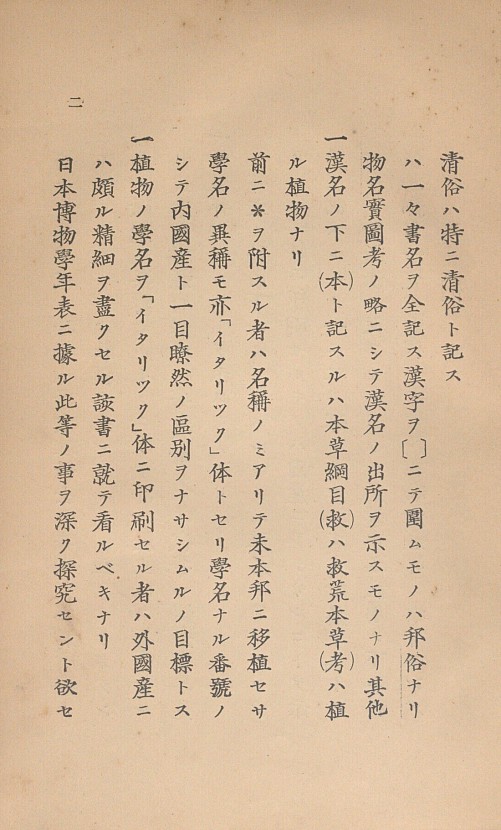 二
日本博物學年表ニ據ル此等ノ事ヲ深ク探究セント欲セ
ハ頗ル精細ヲ盡クセル該書ニ就テ看ルベキナリ
一植物ノ學名ヲ「イタリツク」体ニ印刷セル者ハ外國産ニ
シテ内國産ト一目瞭然ノ區别ヲナサシムルノ目標トス
學名ノ異稱モ亦「イタリツク」体トセリ學名ナル番號ノ
前ニ*ヲ附スル者ハ名稱ノミアリテ未本邦ニ移植セサ
ル植物ナリ
一漢名ノ下ニ(本)ト記スルハ本草綱目(救)ハ救荒本草(考)ハ植
物名實圖考ノ略ニシテ漢名ノ出所ヲ示スモノナリ其他
ハ一々書名ヲ全記ス漢字ヲ〔〕ニテ圍ムモノハ邦俗ナリ
清俗ハ特ニ清俗ト記ス